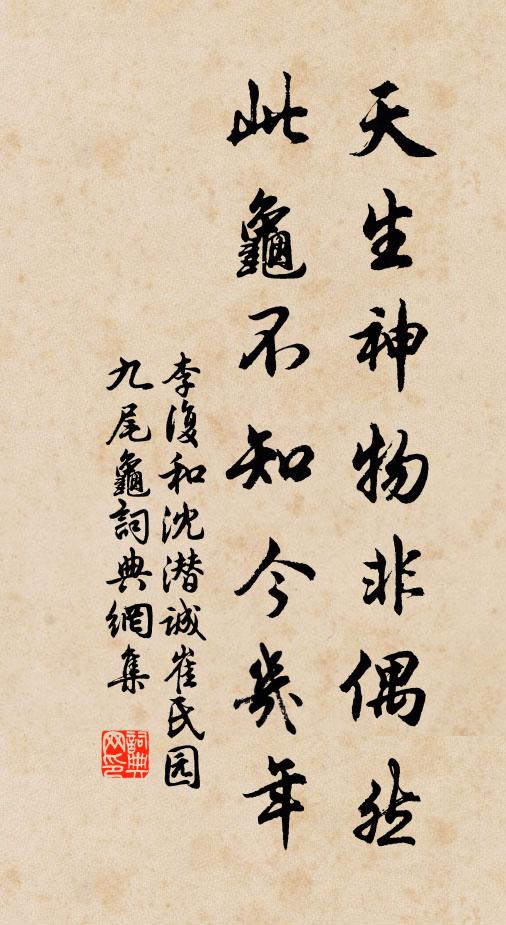 天生神物非偶然
此龜不知今幾年
李復和沈潜诚崔氏园
九尾龜詞典網集
詞典网印